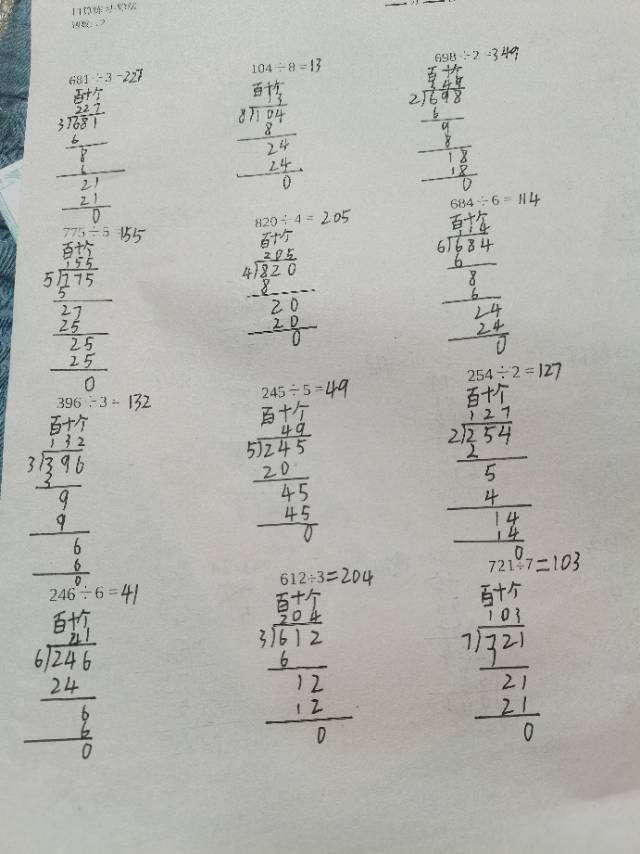 681÷3=227
百十个
227
3)681
6
8
6
21
21
0
104÷8=13
百十个
13
8)104
8
24
24
0
698÷2=349
百十个
349
2)698
6
9
8
18
18
0
775÷5=155
百十个
155
5)775
5
27
25
25
25
0
820÷4=205
百十个
205
4)820
8
20
20
0
684÷6=114
百十个
114
6)684
6
8
6
24
24
0
396÷3=132
百十个
132
3)396
3
9
9
6
6
0
245÷5=49
百十个
49
5)245
20
45
45
0
254÷2=127
百十个
127
2)254
2
5
4
14
14
0
246÷6=41
百十个
41
6)246
24
6
6
0
612÷3=204
百十个
204
3)612
6
12
12
0
721÷7=103
百十个
103
7)721
7
21
21
0